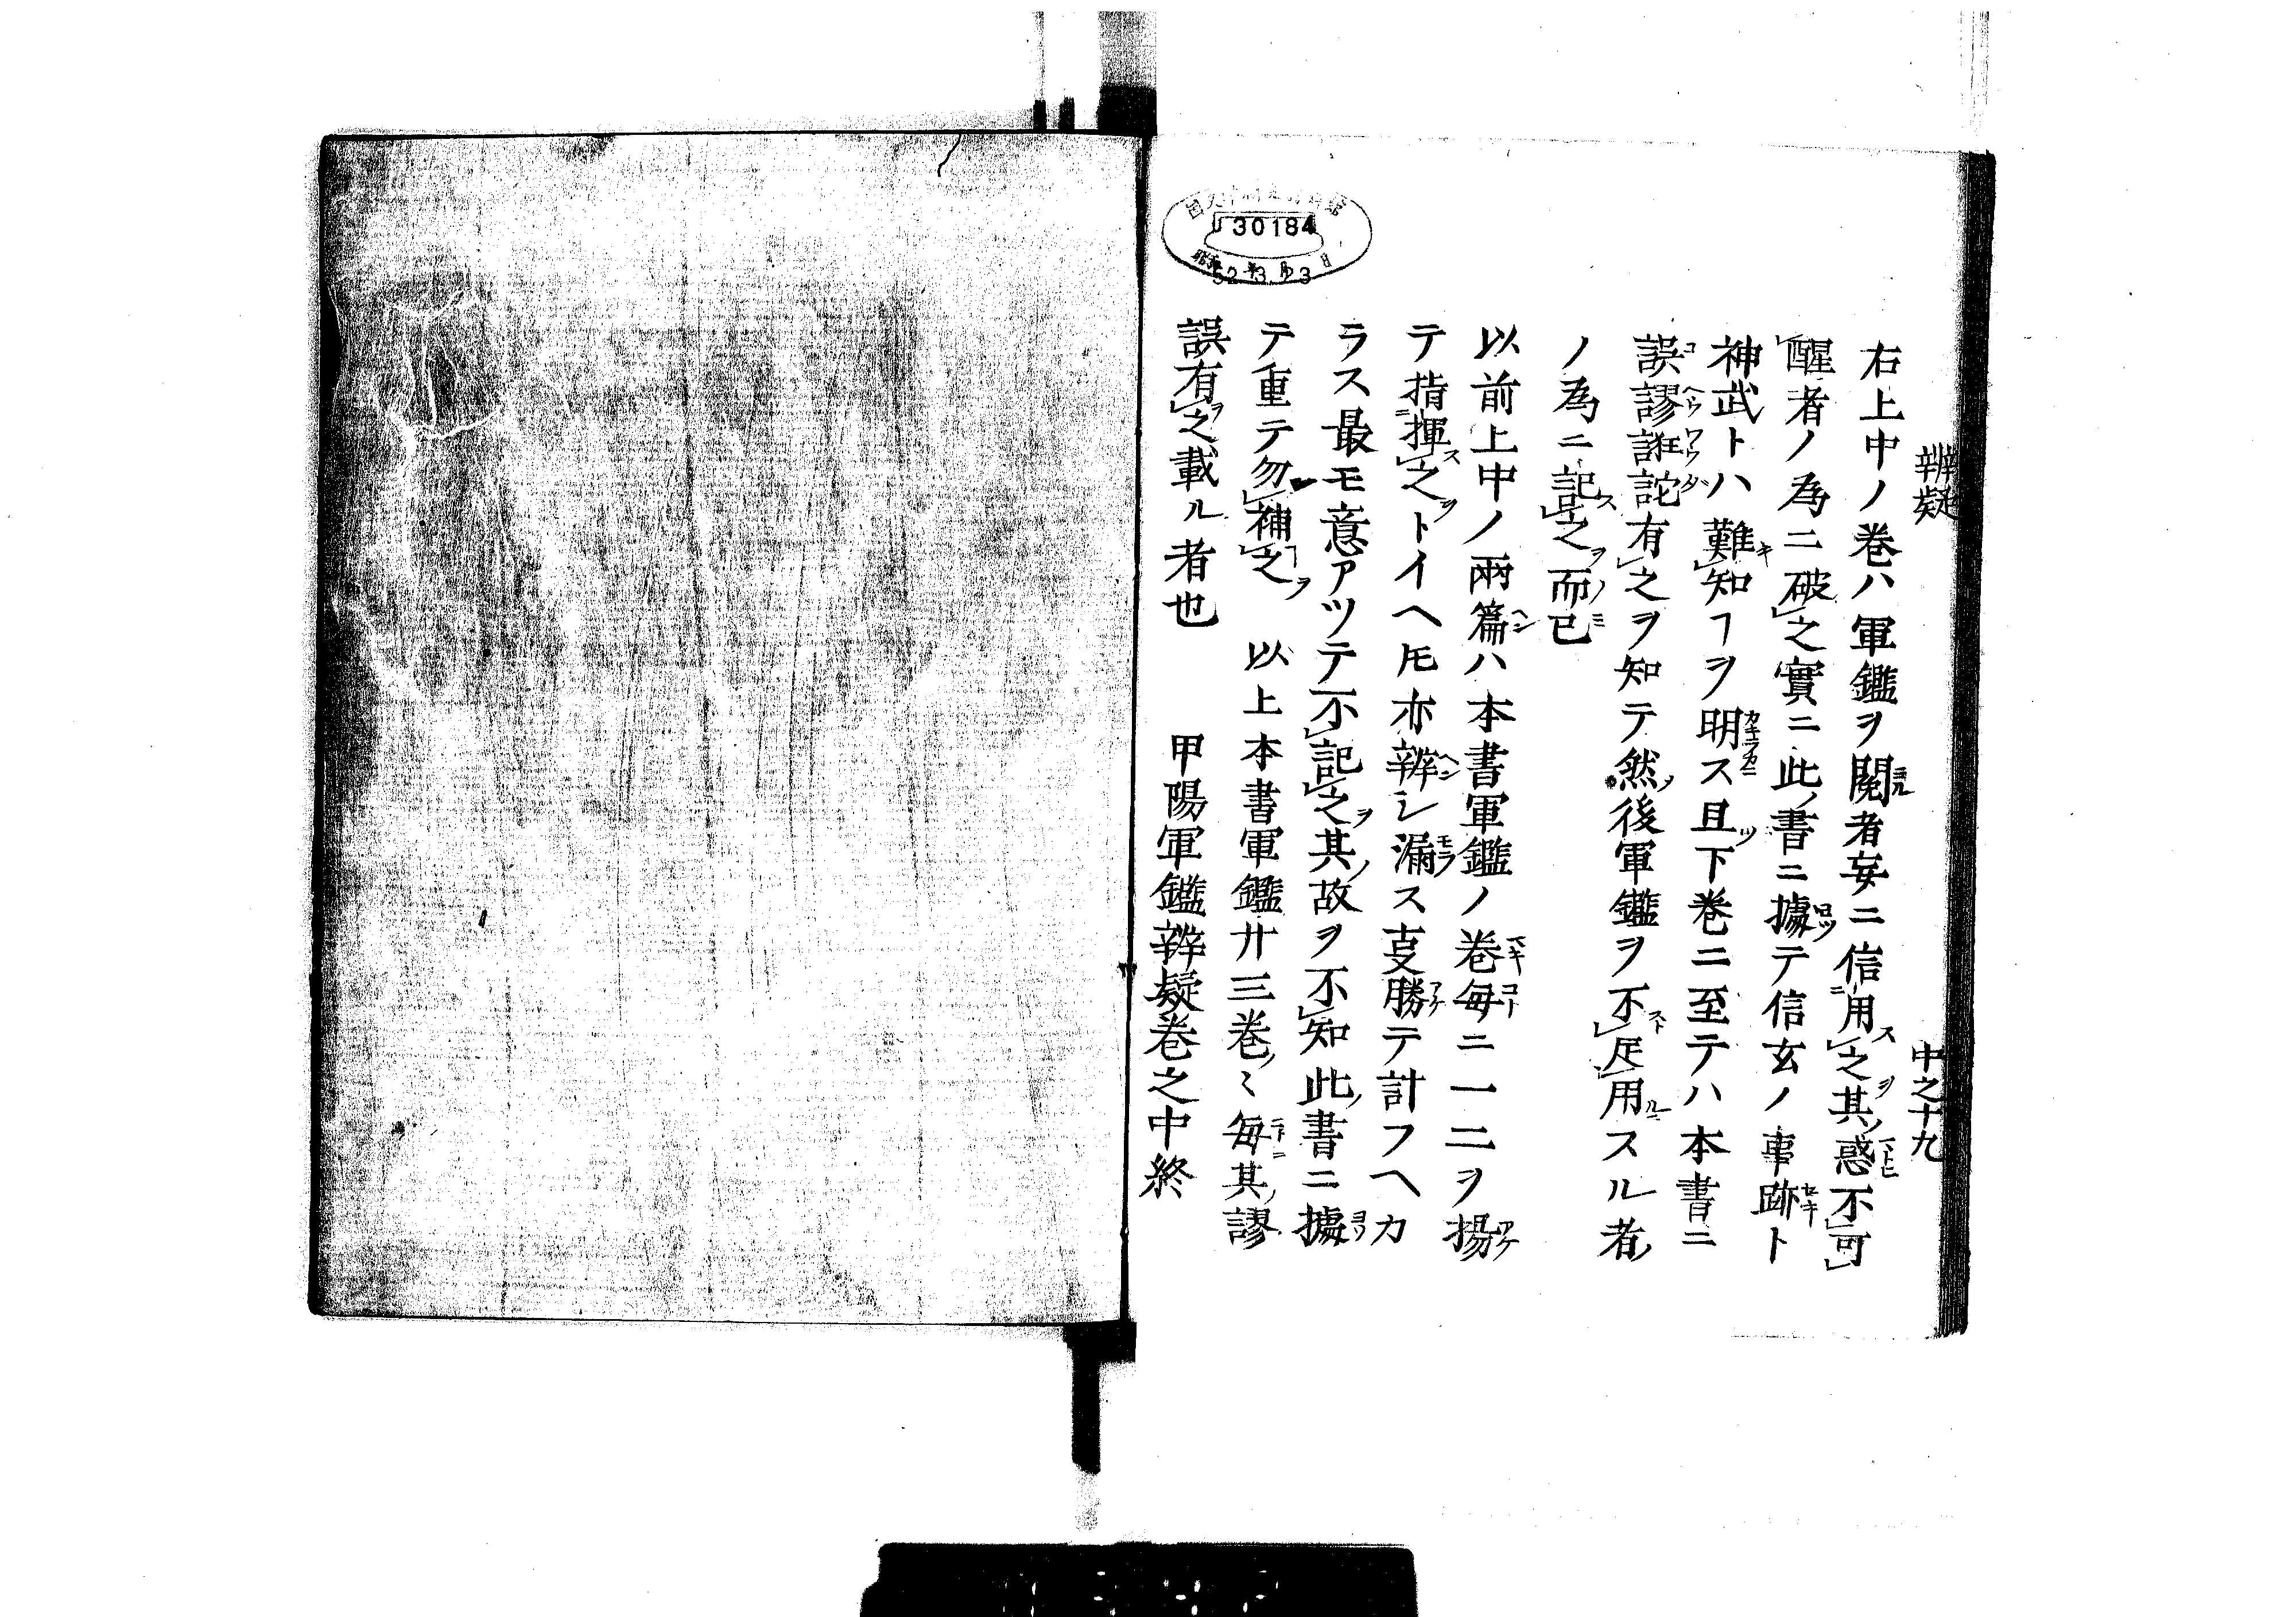 辨疑　中之十九
右上中ノ卷ハ軍鑑ヲ閱者妄ニ信用之其惑不可
醒者ノ為ニ破之實ニ此書ニ據テ信玄ノ事跡ト
神武トハ難知ヿヲ明ス且下卷ニ至テハ本書ニ
誤謬誑詑有之ヲ知テ然後軍鑑ヲ不足用スル者
ノ為ニ記之而已
以前上中ノ兩篇ハ本書軍鑑ノ卷每ニ一二ヲ揚
テ指揮之トイヘ𪜈亦辨シ漏ス叓勝テ計フヘカ
ラス最モ意アツテ不記之其故ヲ不知此書ニ據
テ重テ勿補之　以上本書軍鑑廿三卷ノ〻每其謬
誤有之載ル者也
甲陽軍鑑辨疑卷之中終
30184
52.3.3